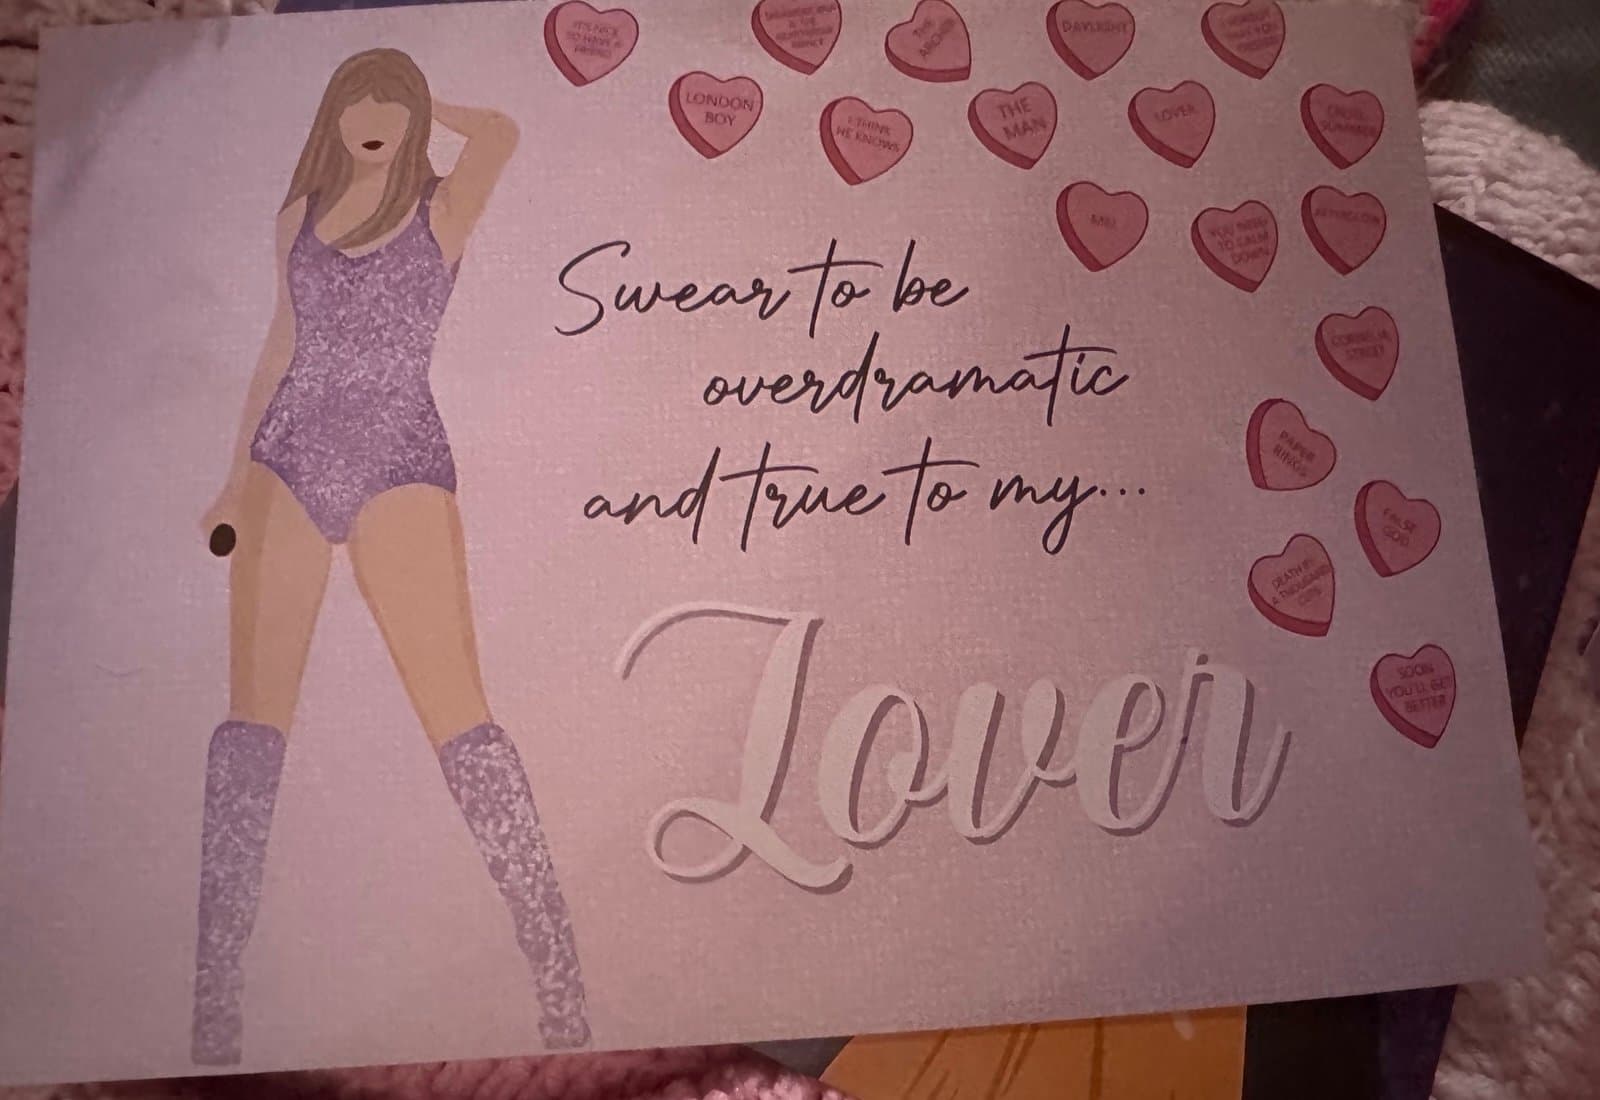 IT'S NICE
TO HAVE A
FRIEND
THE
ARCHER
DAYLIGHT
LONDON
BOY
I THINK
HE KNOWS
THE
MAN
LOVER
CRUEL
SUMMER
ME!
YOU NEED
TO CALM
DOWN
AFTERGLOW
CORNELIA
STREET
PAPER
RINGS
FALSE
GOD
DEATH BY
A THOUSAND
CUTS
SOON
YOU'LL GET
BETTER
Swear to be
overdramatic
and true to my...
Lover